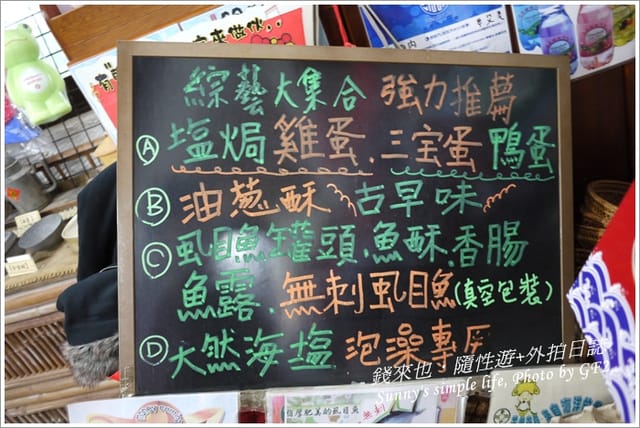 綜藝大集合 強力推薦
Ⓐ 塩焗雞蛋、三宝蛋 鴨蛋
Ⓑ 油葱酥 古早味
Ⓒ 虱目魚罐頭.魚酥.香腸
魚露、無刺虱目魚(真空包裝)
Ⓓ 天然海塩 泡澡專區
錢來也。隨性遊+外拍日誌
Sunny's simple life, Photo by GF2